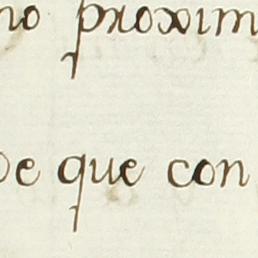 no proxim
de que con